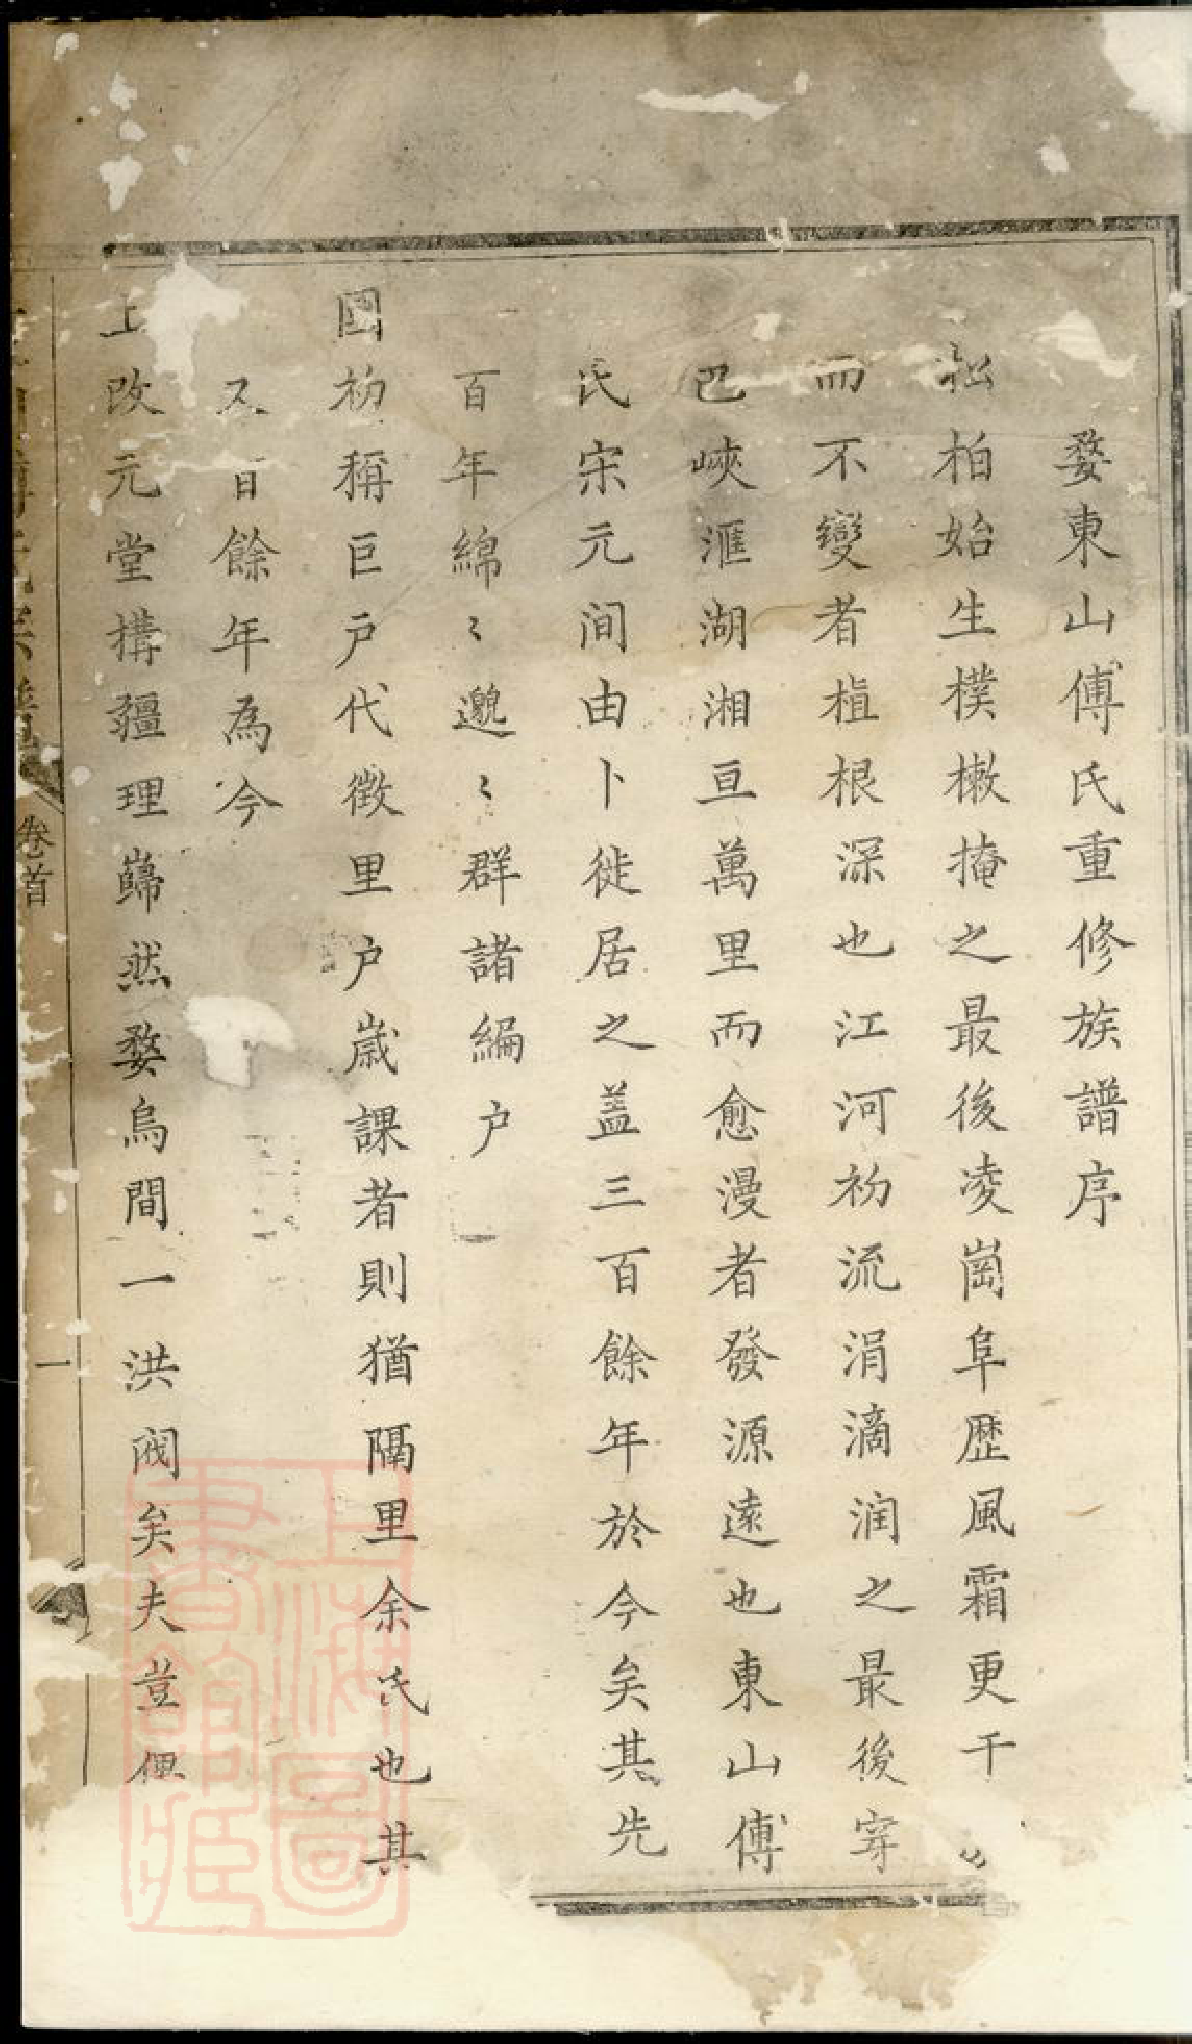 婺東山傅氏重修族譜序
松柏始生樸樕掩之最後凌崗阜歷風霜更千
而不變者植根深也江河初流涓滴潤之最後穿
巴峽滙湖湘亘萬里而愈漫者發源遠也東山傅
氏宋元间由卜徙居之盖三百餘年於今矣其先
百年綿〻邈〻群諸編户
國初稱巨戸代徵里户歲課者則猶隔里余氏也其
又百餘年為今
上改元堂構疆理巋然婺烏間一洪阀矣夫豈偶
卷首
一
上海圖書館藏